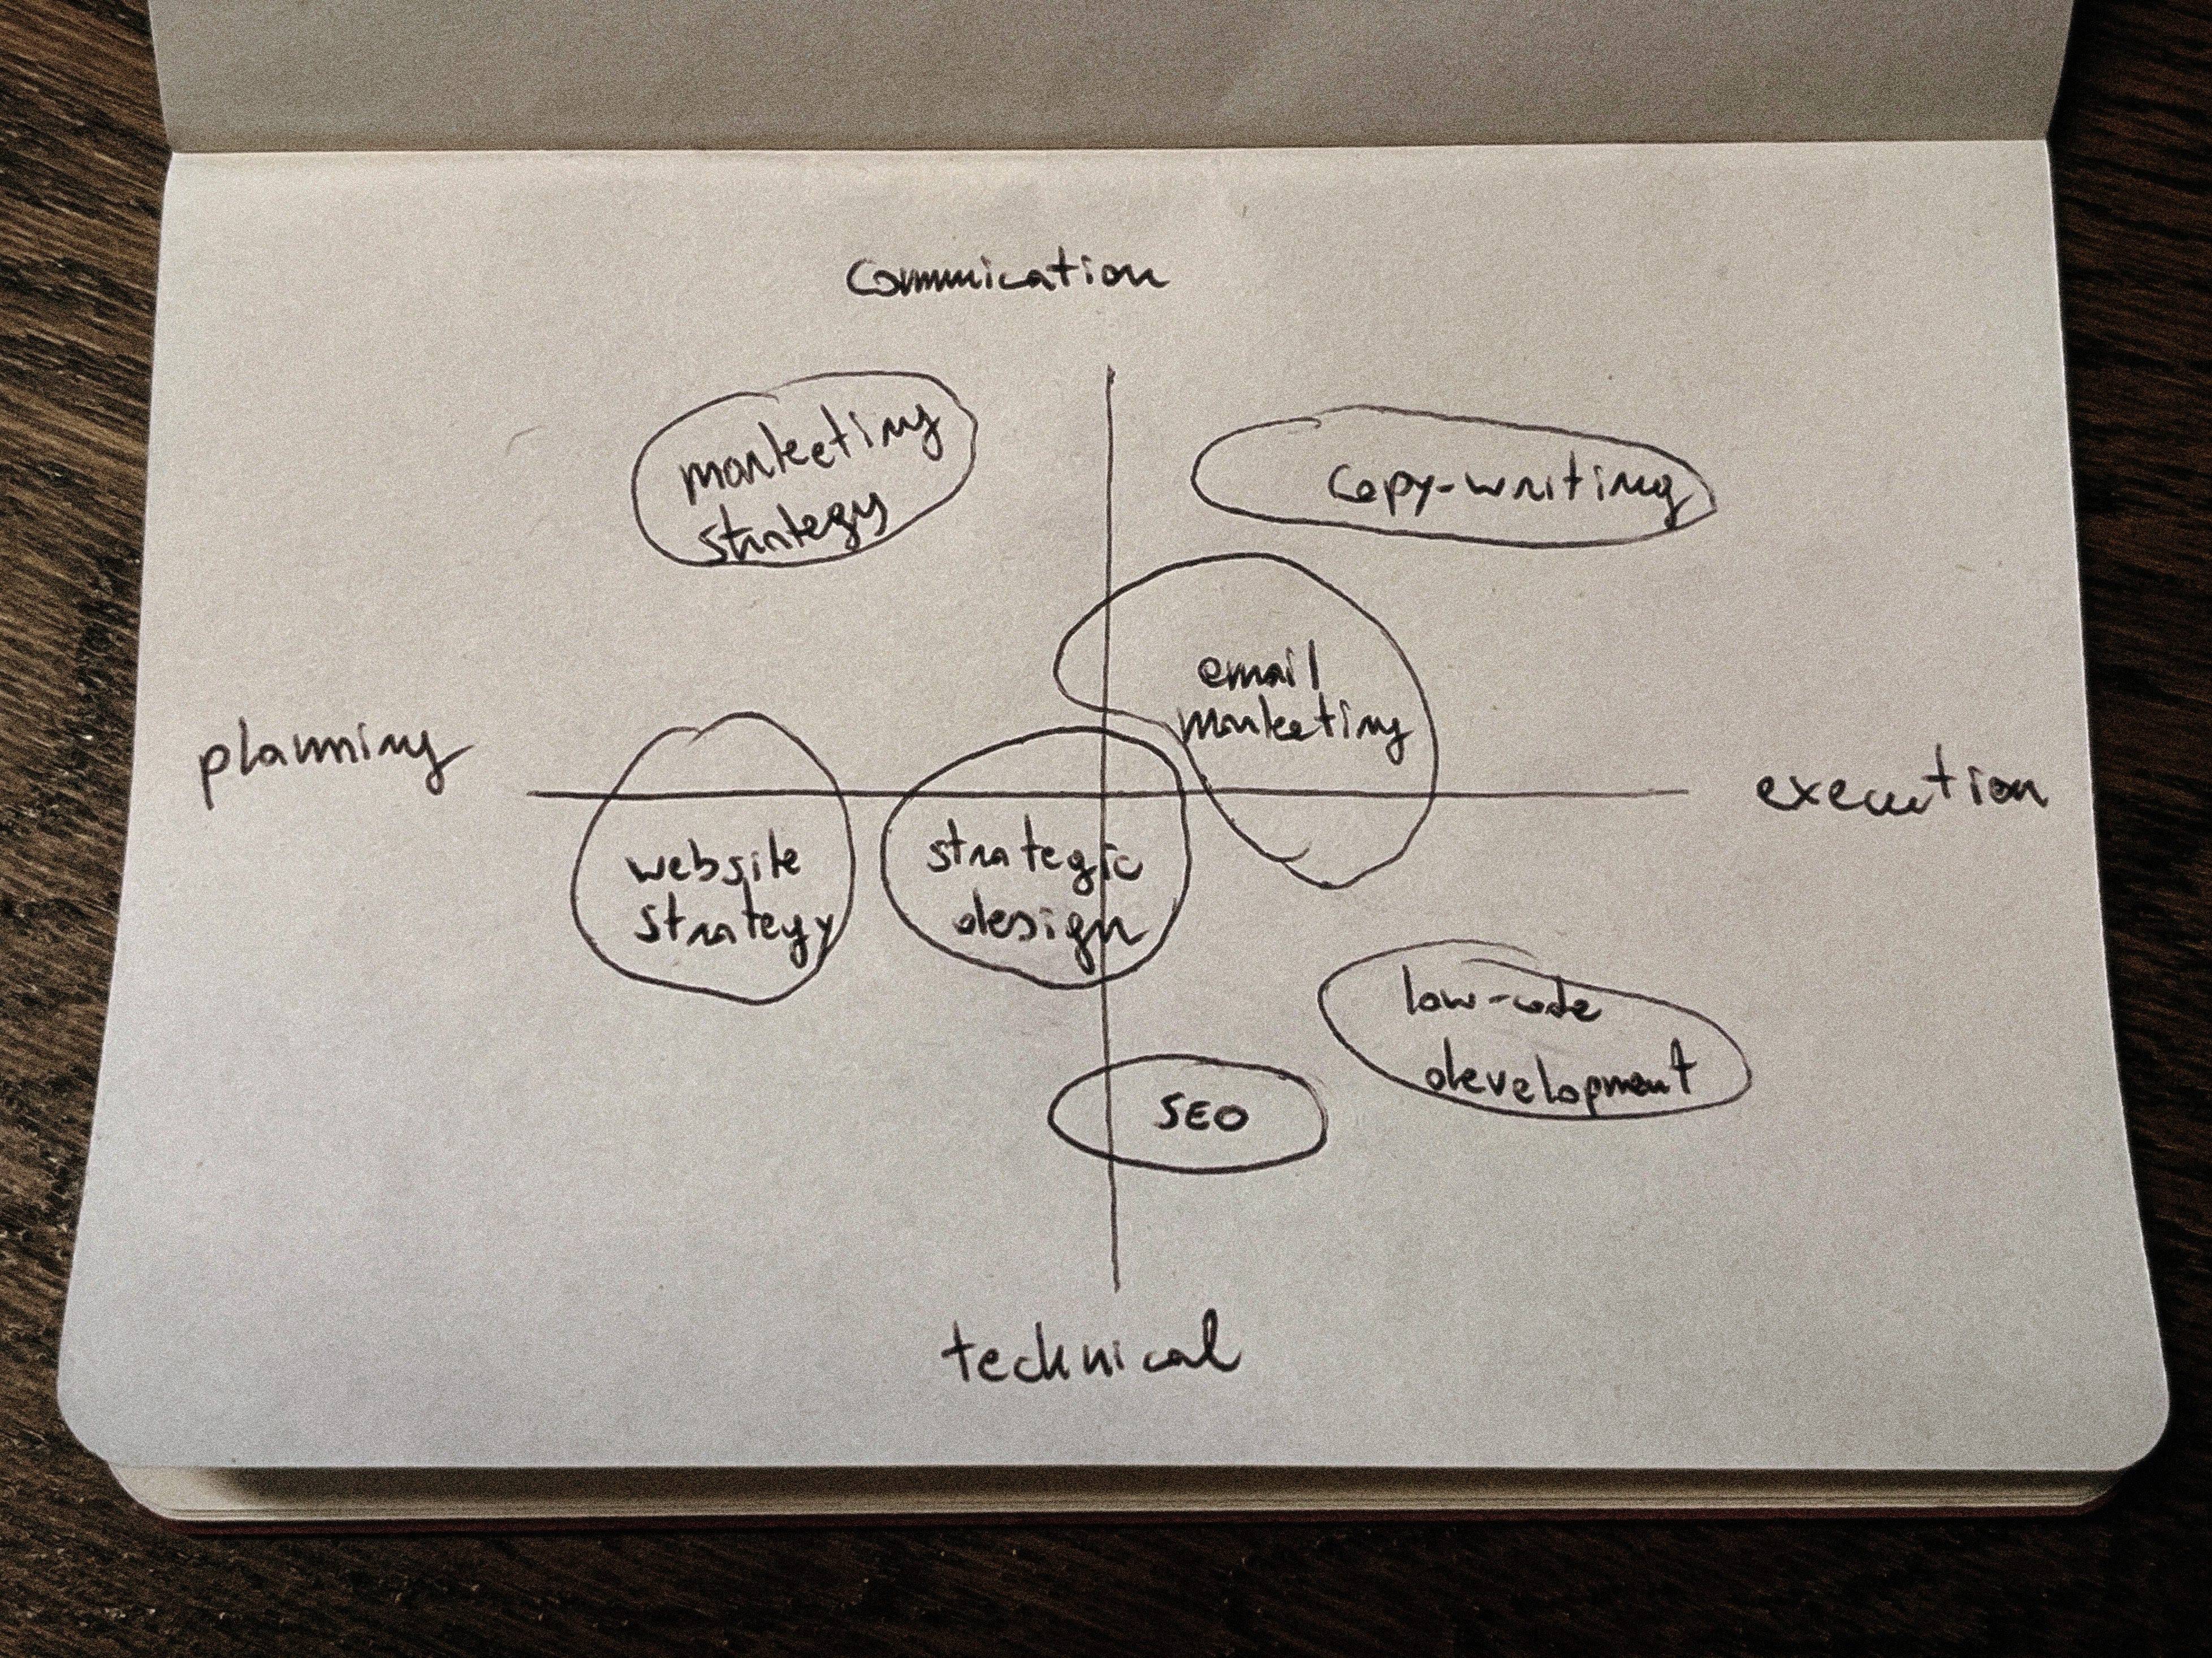 Commnication
marketing
strategy
copy-writing
email
marketing
planning
execution
website
strategy
strategic
design
low-code
development
SEO
technical